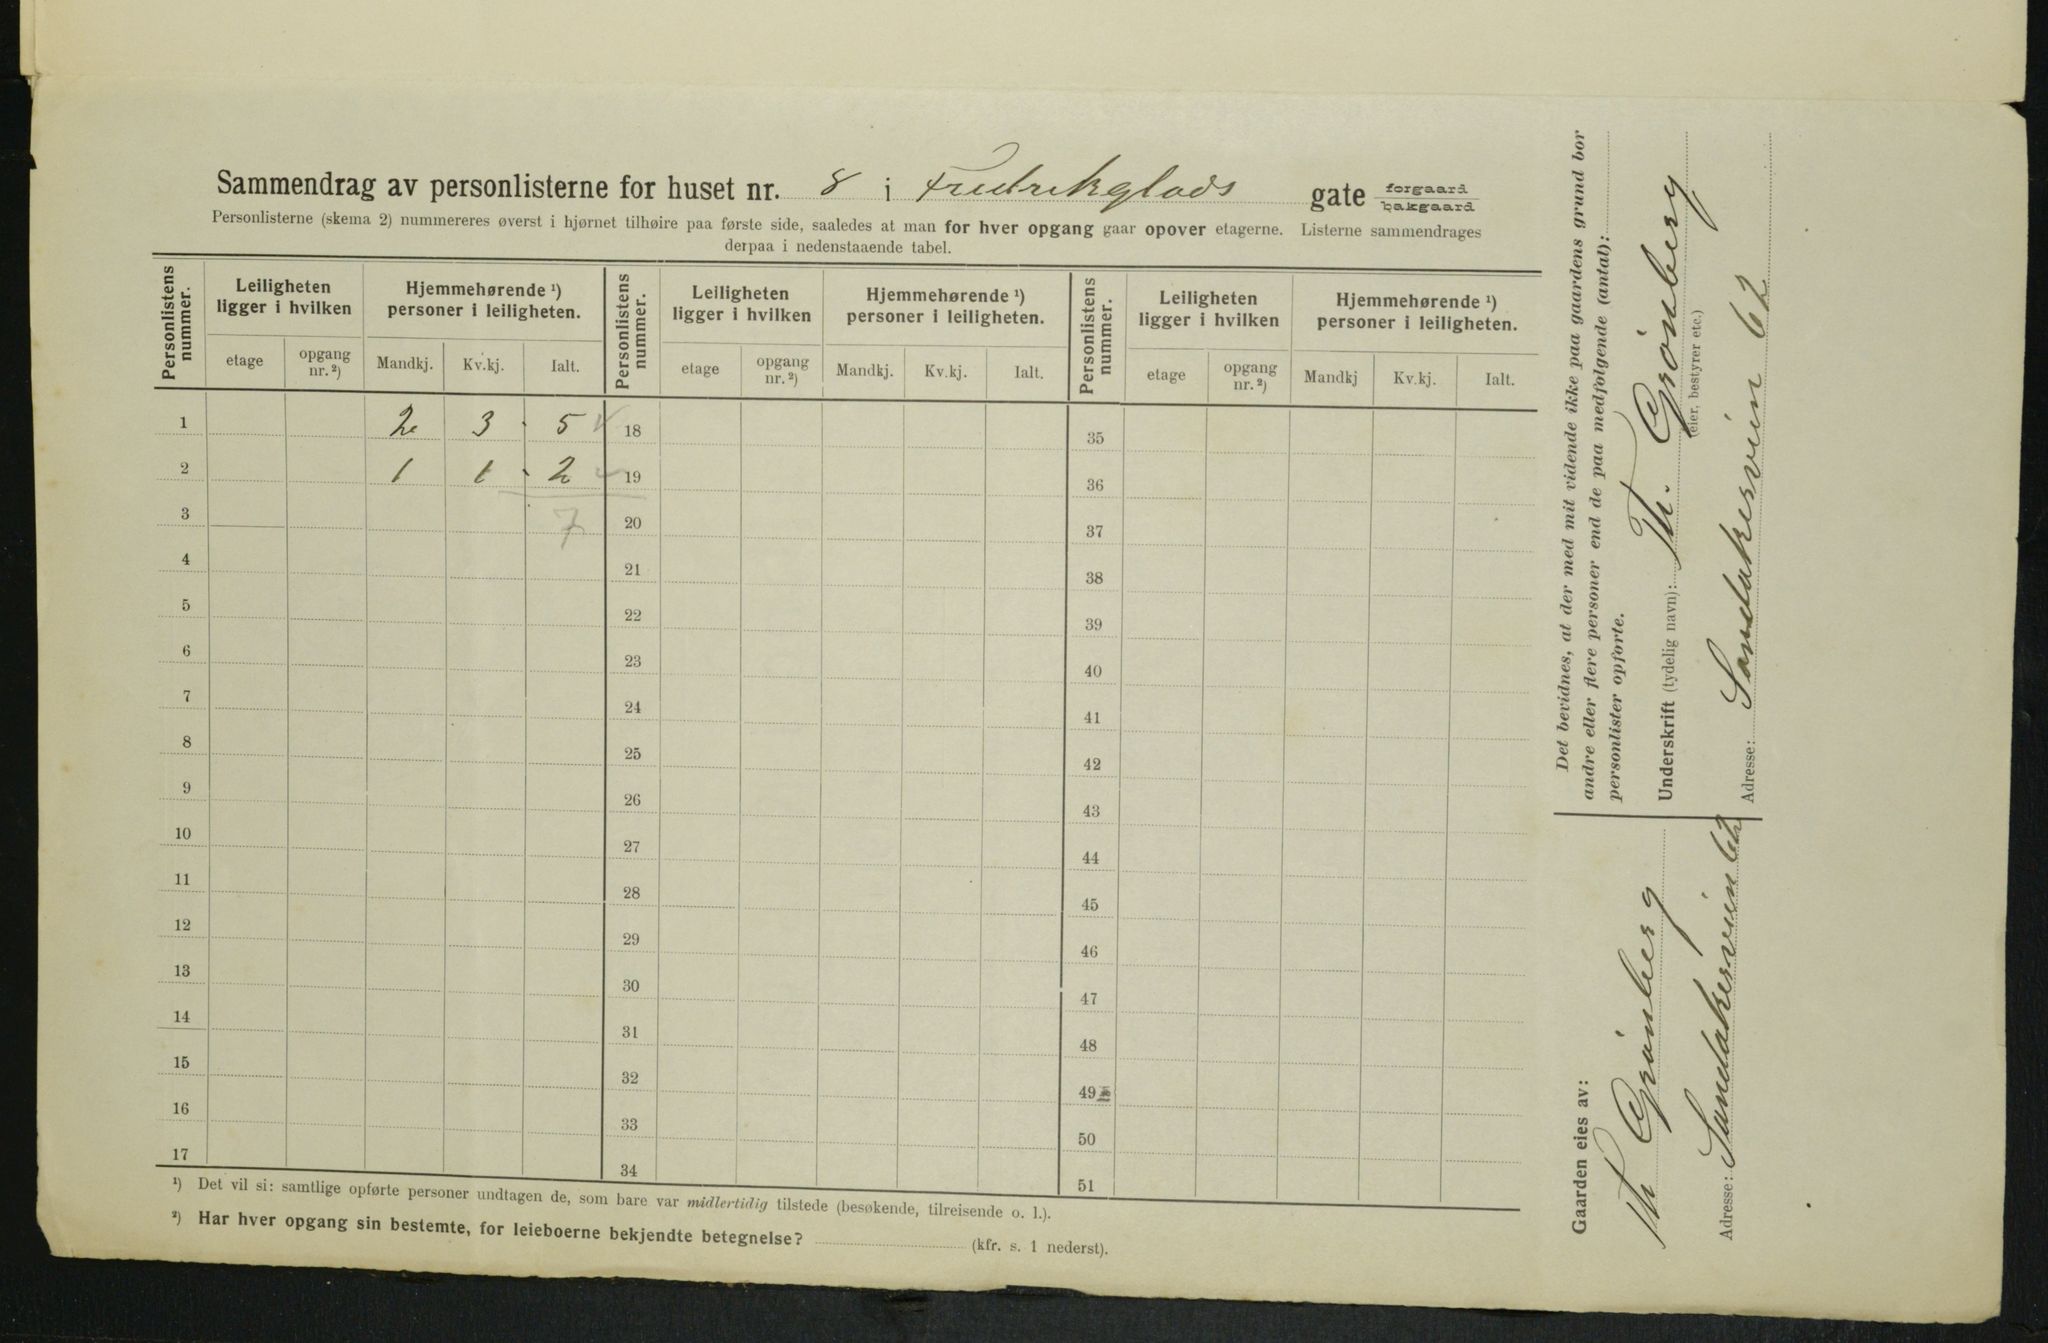 Sammendrag av personlisterne for huset nr. 8 i Fredrikglads gate forgaard bakgaard
Personlisterne (skema 2) nummereres øverst i hjørnet tilhøire paa første side, saaledes at man for hver opgang gaar opover etagerne. Listerne sammendrages
derpaa i nedenstaaende tabel.
Personlistens nummer. Leiligheten ligger i hvilken Hjemmehørende ¹) personer i leiligheten. Personlistens nummer. Leiligheten ligger i hvilken Hjemmehørende ¹) personer i leiligheten. Personlistens nummer. Leiligheten ligger i hvilken Hjemmehørende ¹) personer i leiligheten.
etage opgang nr. ²) Mandkj. Kv.kj. Ialt. etage opgang nr. ²) Mandkj. Kv.kj. Ialt. etage opgang nr. ²) Mandkj Kv.kj. Ialt.
1 2 3 5 18 35
2 1 1 2 19 36
3 7 20 37
4 21 38
5 22 39
6 23 40
7 24 41
8 25 42
9 26 43
10 27 44
11 28 45
12 29 46
13 30 47
14 31 48
15 32 49
16 33 50
17 34 51
¹) Det vil si: samtlige opførte personer undtagen de, som bare var midlertidig tilstede (besøkende, tilreisende o. l.).
²) Har hver opgang sin bestemte, for leieboerne bekjendte betegnelse? (kfr. s. 1 nederst).
Det bevidnes, at der med mit vidende ikke paa gaardens grund bor
andre eller flere personer end de paa medfølgende (antal):
personlister opførte.
Underskrift (tydelig navn): Th. Grönberg
(eier, bestyrer etc.)
Adresse: Sandakerveien 62
Gaarden eies av:
Th Grönberg
Adresse: Sandakerveien 62